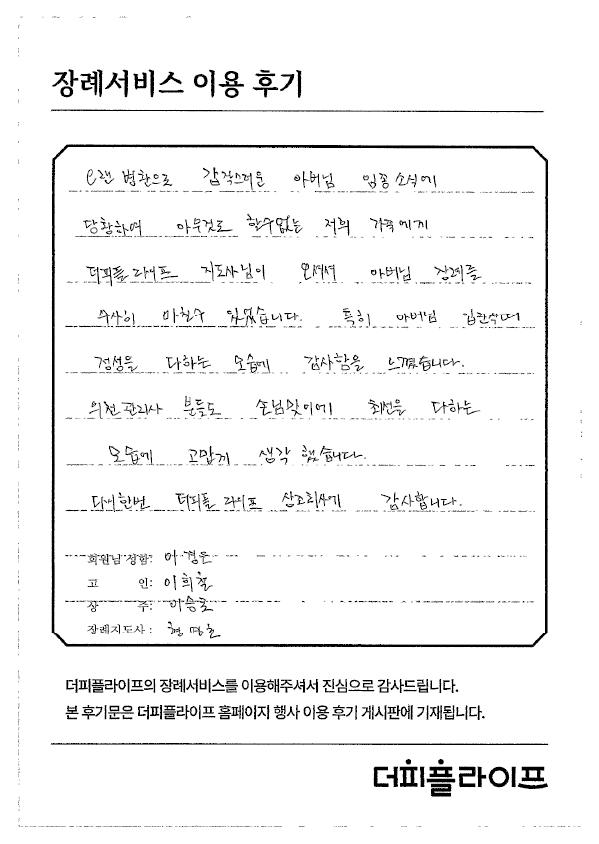 장례서비스 이용 후기
오랜 병환으로 갑작스러운 아버님 임종 소식에
당황하여 아무것도 할수없는 저희 가족에게
더피플라이프 지도사님이 오셔서 아버님 장례를
무사히 마칠수 있었습니다. 특히 아버님 입관식때
정성을 다하는 모습에 감사함을 느꼈습니다.
의전관리사 분들도 손님맞이에 최선을 다하는
모습에 고맙게 생각 했습니다.
다시한번 더피플 라이프 상조회사에 감사합니다.
회원님 성함: 이경은
고 인: 이희철
상 주: 이승호
장례지도사:
더피플라이프의 장례서비스를 이용해주셔서 진심으로 감사드립니다.
본 후기문은 더피플라이프 홈페이지 행사 이용 후기 게시판에 기재됩니다.
더피플라이프